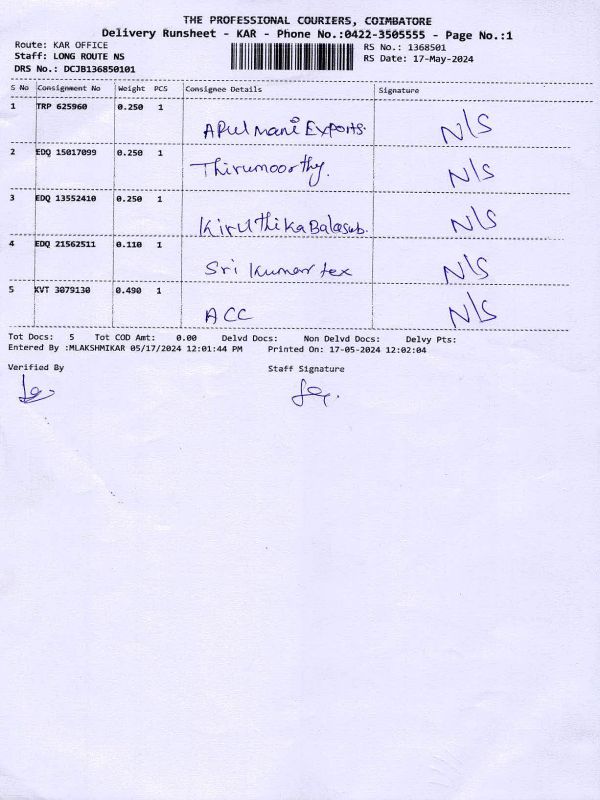 THE PROFESSIONAL COURIERS, COIMBATORE
Delivery Runsheet - KAR - Phone No.:0422-3505555 - Page No.:1
Route: KAR OFFICE RS No.: 1368501
Staff: LONG ROUTE NS RS Date: 17-May-2024
DRS No.: DCJB136850101
S No Consignment No Weight PCS Consignee Details Signature
1 TRP 625960 0.250 1
Arulmani Exports. N/S
2 EDQ 15017099 0.250 1
Thirumoorthy. N/S
3 EDQ 13552410 0.250 1
Kiruthika Balasub. N/S
4 EDQ 21562511 0.110 1
Sri Kumar tex N/S
5 KVT 3079130 0.490 1
ACC N/S
Tot Docs: 5 Tot COD Amt: 0.00 Delvd Docs: Non Delvd Docs: Delvy Pts:
Entered By :MLAKSHMIKAR 05/17/2024 12:01:44 PM Printed On: 17-05-2024 12:02:04
Verified By Staff Signature